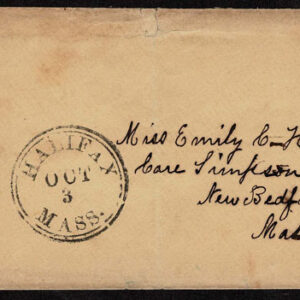 HALIFAX
OCT
3
MASS.
Miss Emily C. H
Care Simpson
New Bedf
Mas